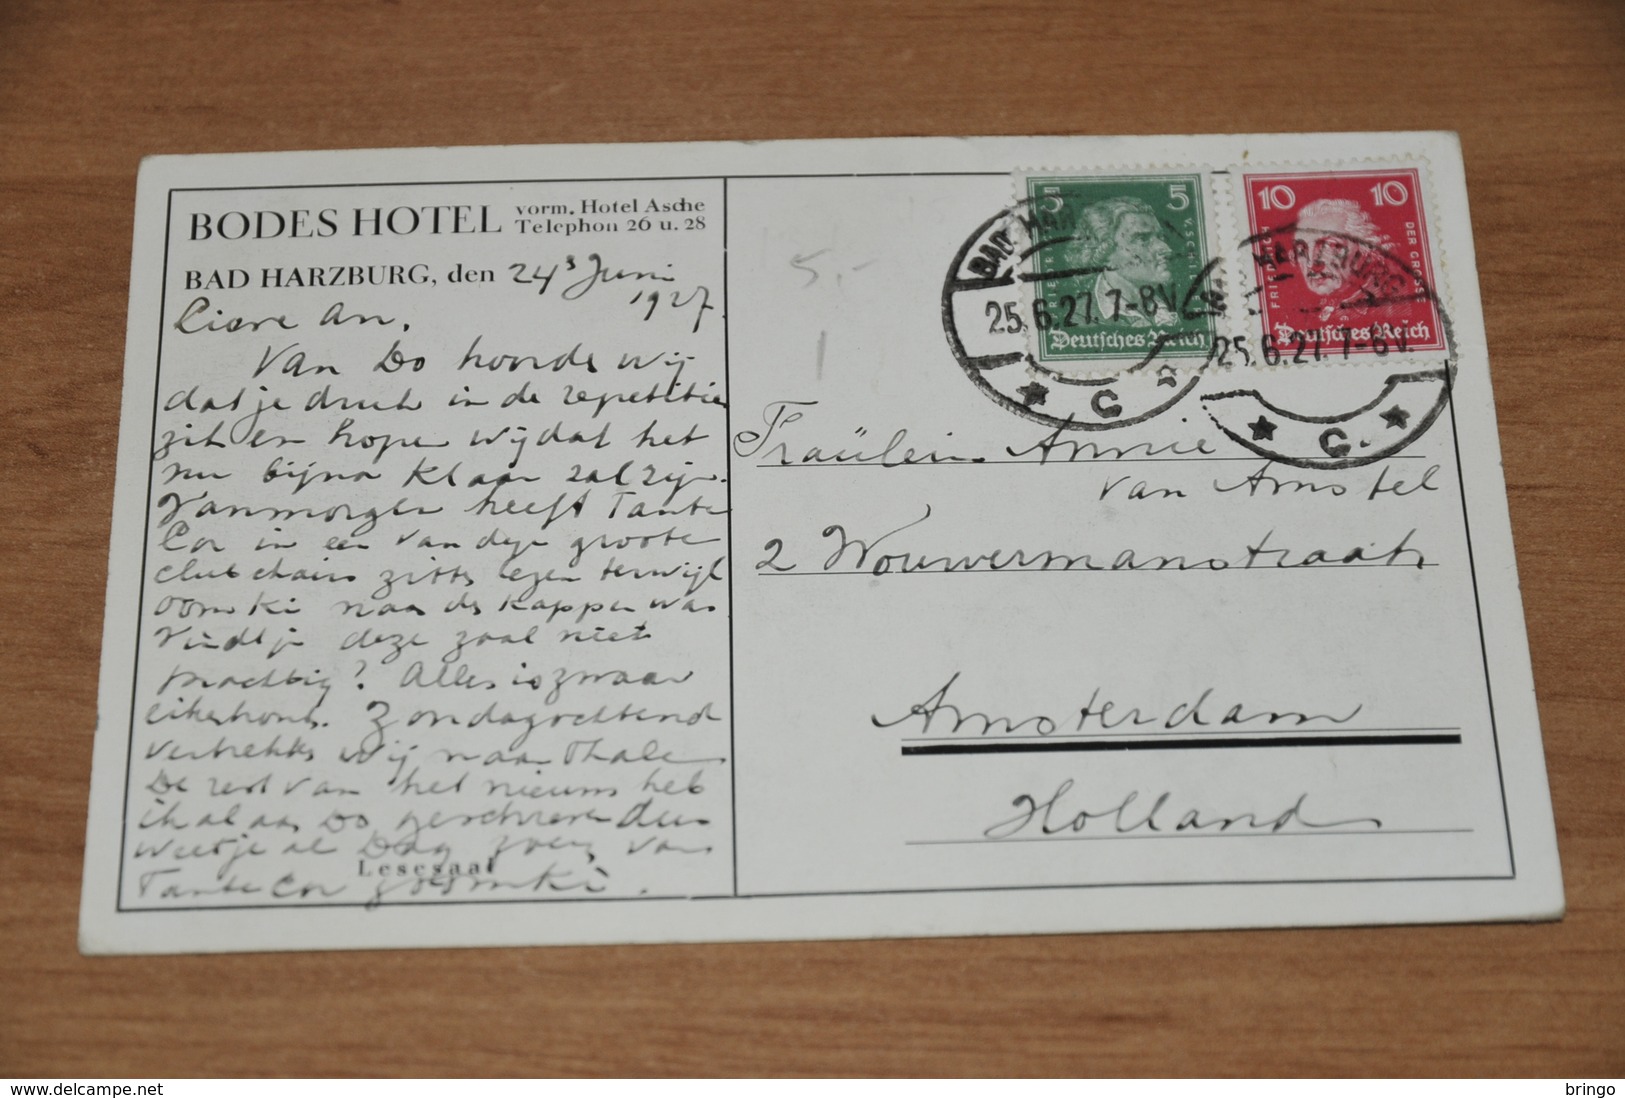 BODES HOTEL vorm. Hotel Asche
Telephon 26 u. 28
BAD HARZBURG, den 24 Juni
1927.
Lieve An,
Van Do hoorde wij
dat je druk in de repetitie
zit en hopen wij dat het
nu bijna klaar zal zijn.
Vanmorgen heeft Tante
Cor in een van deze groote
clubchairs zitten lezen terwijl
oom Ki naar de kapper was
Vindt je deze zaal niet
prachtig? Alles is zwaar
eikenhout. Zondagochtend
vertrekken wij naar Thale
De rest van het nieuws heb
ik al aan Do geschreven dus
weet je al Dag zoen van
Tante Cor Oom Ki.
Lesesaal
5.-
1
5 5
Deutsches Reich
FRIEDRICH V. SCHILLER
10 10
FRIEDRICH DER GROSSE
Deutsches Reich
BAD HARZBURG
25.6.27. 7-8V.
* C *
BAD HARZBURG
25.6.27. 7-8V.
* C. *
Fräulein Annie
van Amstel
2 Wouwermanstraat
Amsterdam
Holland
delcampe.net
bringo